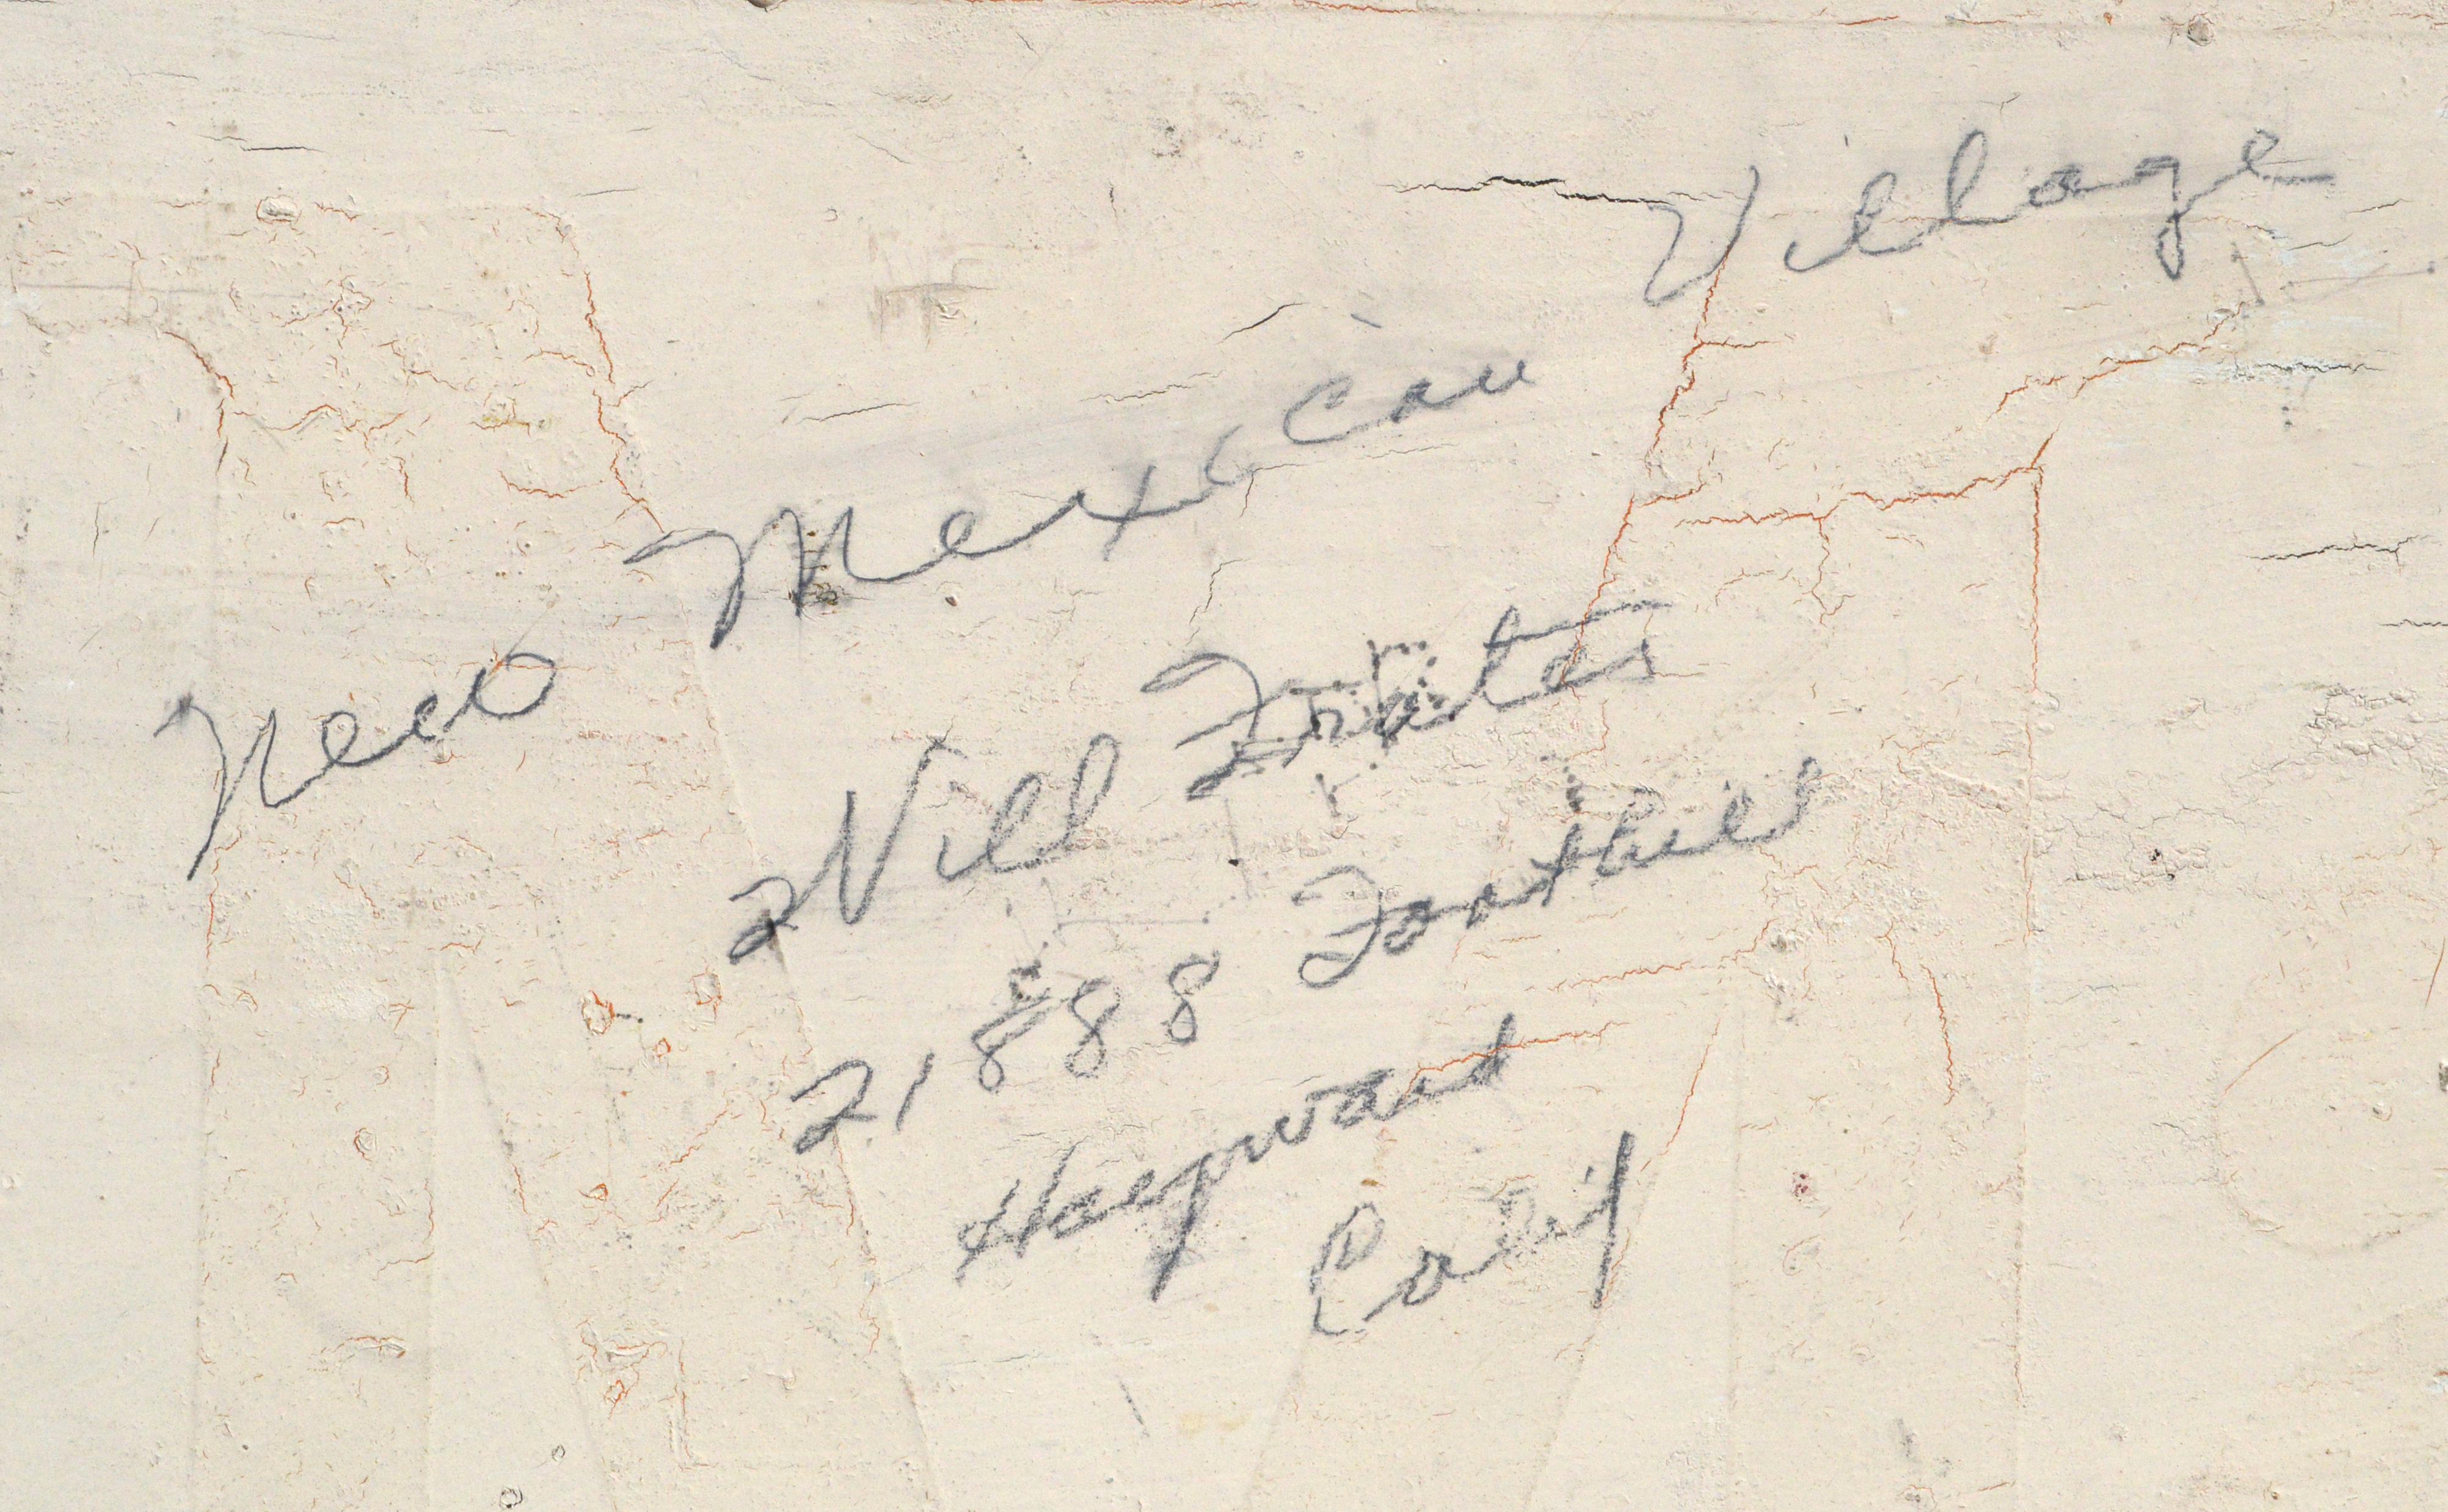 New Mexican Village
Will Frates
21888 Foothill
Hayward
Calif